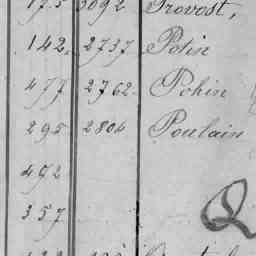 175 3092 Provost,
142. 2737 Potin
477 2762. Pohin
295 2804 Poulain
492
357
Q